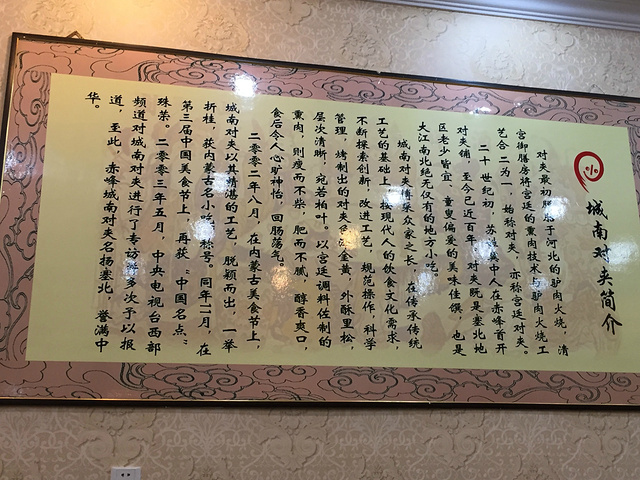 城南对夹简介
对夹最初
于河北的驴肉火烧,清
宫御膳房将宫廷的熏肉技术与驴肉火烧工
艺合二为一,始称对夹,亦称宫廷对夹。
二十世纪初,苏
中人在赤峰首开
对夹铺,至今已近百年
对夹既是塞北地
区老少皆宜、童叟偏爱的美味佳馔,也是
大江南北绝无仅有的地方小吃。
城南对夹博采众家之长,在传承传统
工艺的基础上,按现代人的饮食文化需求,
不断探索创新,改进工艺,规范操作,科学
管理,烤制出的对夹色
金黄,外酥里松,
层次清晰,宛若柏叶。以宫廷调料佐制的
熏肉,则瘦而不柴,肥而不腻,醇香爽口,
食后令人心旷神怡,回肠荡气。
二零零二年八月,在内蒙古美食节上,
城南对夹以其精湛的工艺,脱颖而出,一举
折桂,获内蒙古名小吃
称号。同年十一月,在
第三届中国美食节上,再获"中国名点"
殊荣。二零零三年五月,中央电视台西部
频道对城南对夹进行了专访
多次予以报
道,至此,赤峰城南对夹名扬塞北,誉满中
华。